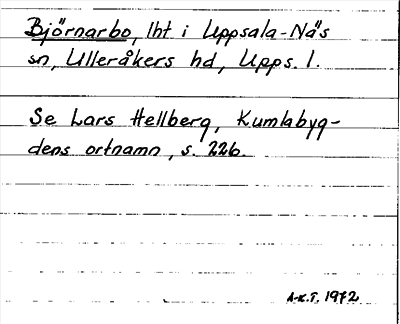 Björnarbo, lht i Uppsala-Näs
sn, Ulleråkers hd, Upps. l.
Se Lars Hellberg, Kumlabyg-
dens ortnamn, s. 226.
A-K.T. 1972